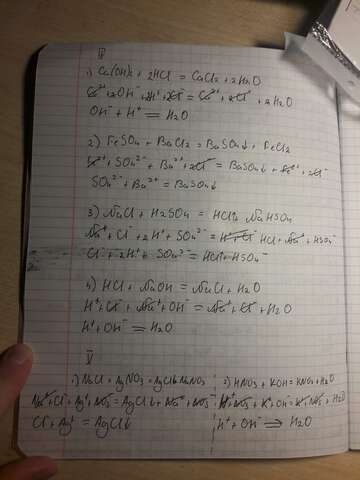 IV
1) Ca(OH)₂ + 2HCl = CaCl₂ + 2H₂O
Ca²⁺ + 2OH⁻ + 2H⁺ + 2Cl⁻ = Ca²⁺ + 2Cl⁻ + 2H₂O
OH⁻ + H⁺ = H₂O
2) FeSO₄ + BaCl₂ = BaSO₄↓ + FeCl₂
Fe²⁺ + SO₄²⁻ + Ba²⁺ + 2Cl⁻ = BaSO₄↓ + Fe²⁺ + 2Cl⁻
SO₄²⁻ + Ba²⁺ = BaSO₄↓
3) NaCl + H₂SO₄ = HCl + NaHSO₄
Na⁺ + Cl⁻ + 2H⁺ + SO₄²⁻ = HCl + Na⁺ + HSO₄⁻
Cl⁻ + 2H⁺ + SO₄²⁻ = HCl + HSO₄⁻
4) HCl + NaOH = NaCl + H₂O
H⁺ + Cl⁻ + Na⁺ + OH⁻ = Na⁺ + Cl⁻ + H₂O
H⁺ + OH⁻ = H₂O
V
1) NaCl + AgNO₃ = AgCl↓ + NaNO₃
Na⁺ + Cl⁻ + Ag⁺ + NO₃⁻ = AgCl↓ + Na⁺ + NO₃⁻
Cl⁻ + Ag⁺ = AgCl↓
2) HNO₃ + KOH = KNO₃ + H₂O
H⁺ + NO₃⁻ + K⁺ + OH⁻ = K⁺ + NO₃⁻ + H₂O
H⁺ + OH⁻ = H₂O